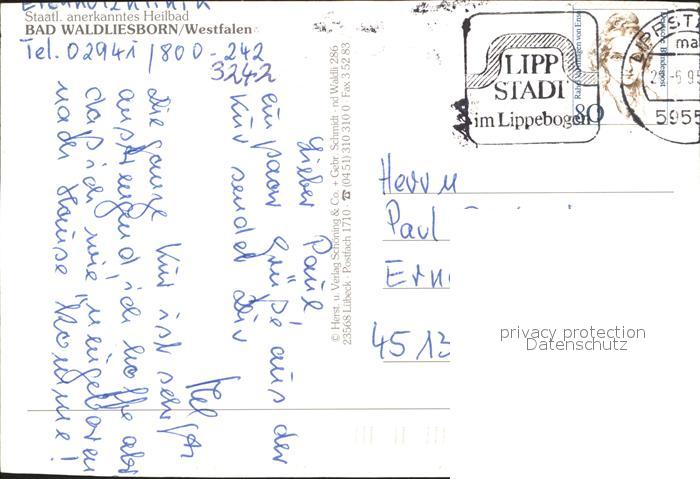 Staatl. anerkanntes Heilbad
BAD WALDLIESBORN/Westfalen
Tel. 02941/800-242
3242
Lieber Paul,
ein paar Grüße aus der
Kur sendet Dir
Helga
Die ganze Kur ist sehr
anstrengend, ich hoffe aber
daß ich wie "neugeboren
nach Hause komme!
© Herst. u. Verlag Schöning & Co. + Gebr. Schmidt
23568 Lübeck · Postfach 1710 · ☎ (04 51) 310 310 0 Fax 3 52 83
LIPP
STADT
im Lippebogen
Deutsche Bundespost
80
LIPPSTA
5955
Herrn
Paul
45 13
privacy protection
Datenschutz